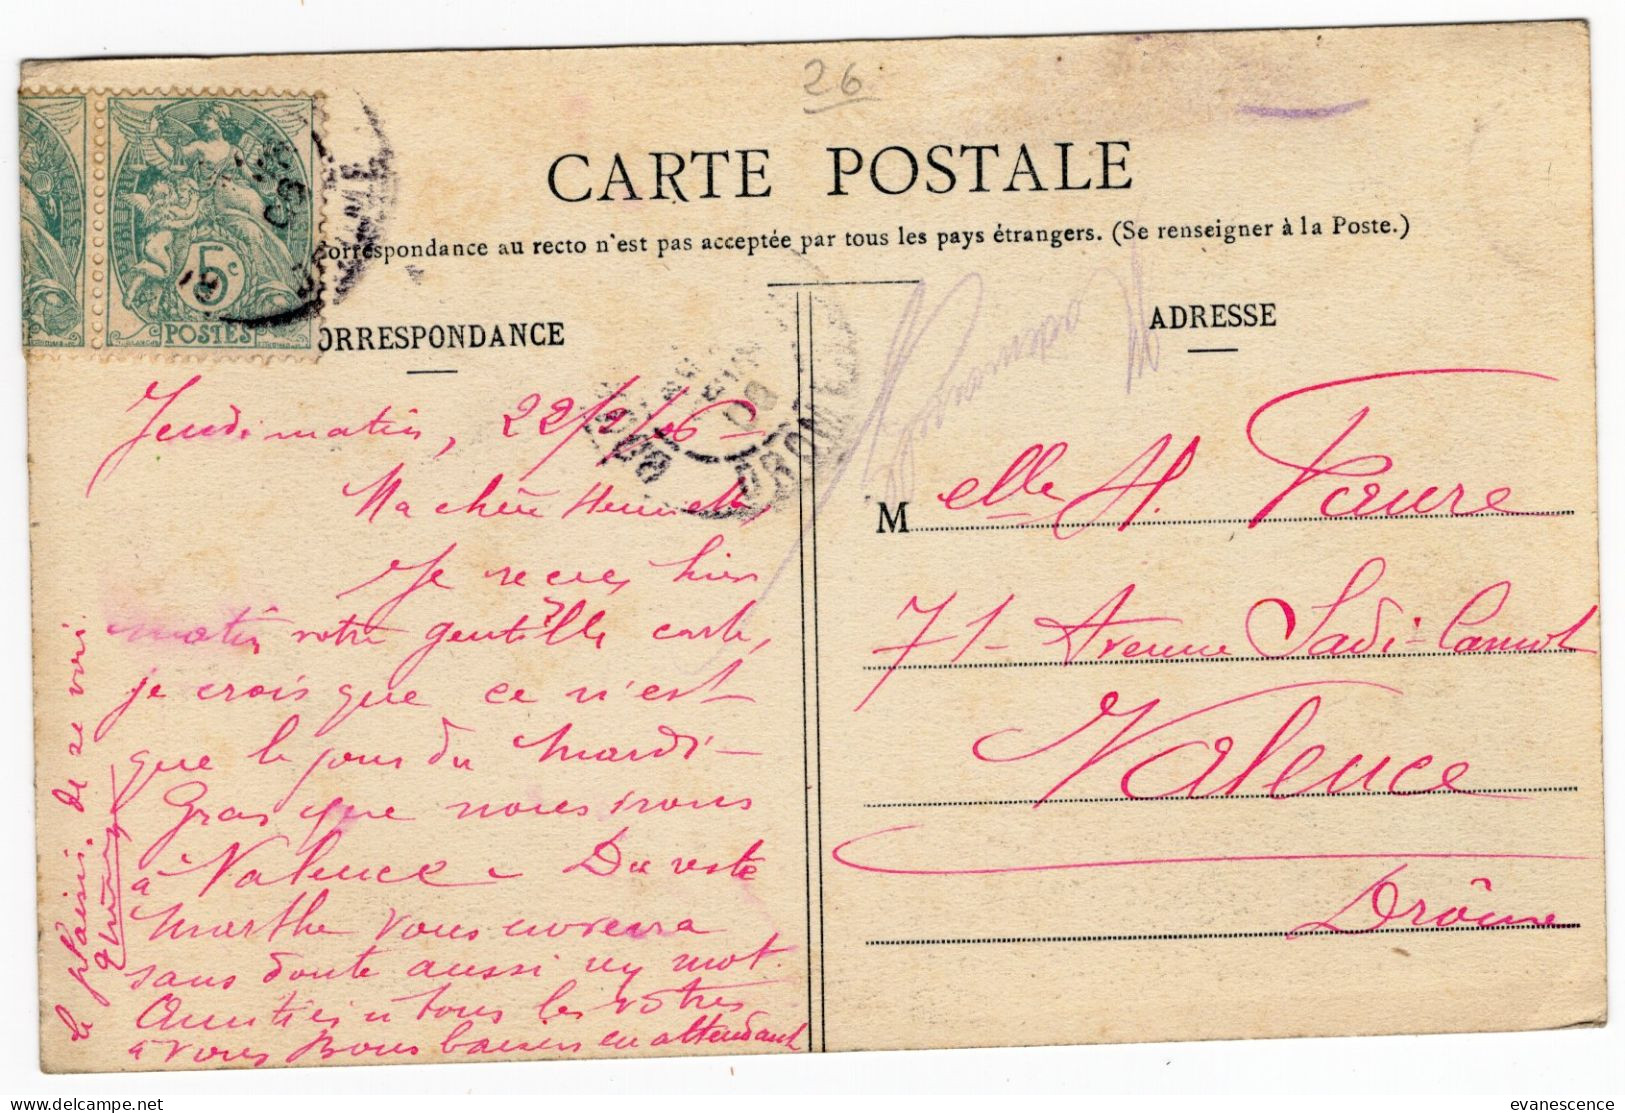 26
CARTE POSTALE
orrespondance au recto n'est pas acceptée par tous les pays étrangers. (Se renseigner à la Poste.)
ORRESPONDANCE
ADRESSE
5c
POSTES
DROME
Jeudi matin, 22/2/06 -
Ma chère Henriette,
Je reçus hier
matin votre gentille carte,
je crois que ce n'est
que le jour du Mardi-
Gras que nous irons
à Valence - Du reste
Marthe vous enverra
sans doute aussi un mot.
Amitiés à tous les vôtres
à vous Bons baisers en attendant
le plaisir de se voir.
Melle H. Faure
71 - Avenue Sadi-Carnot
Valence
Drôme
evanescence